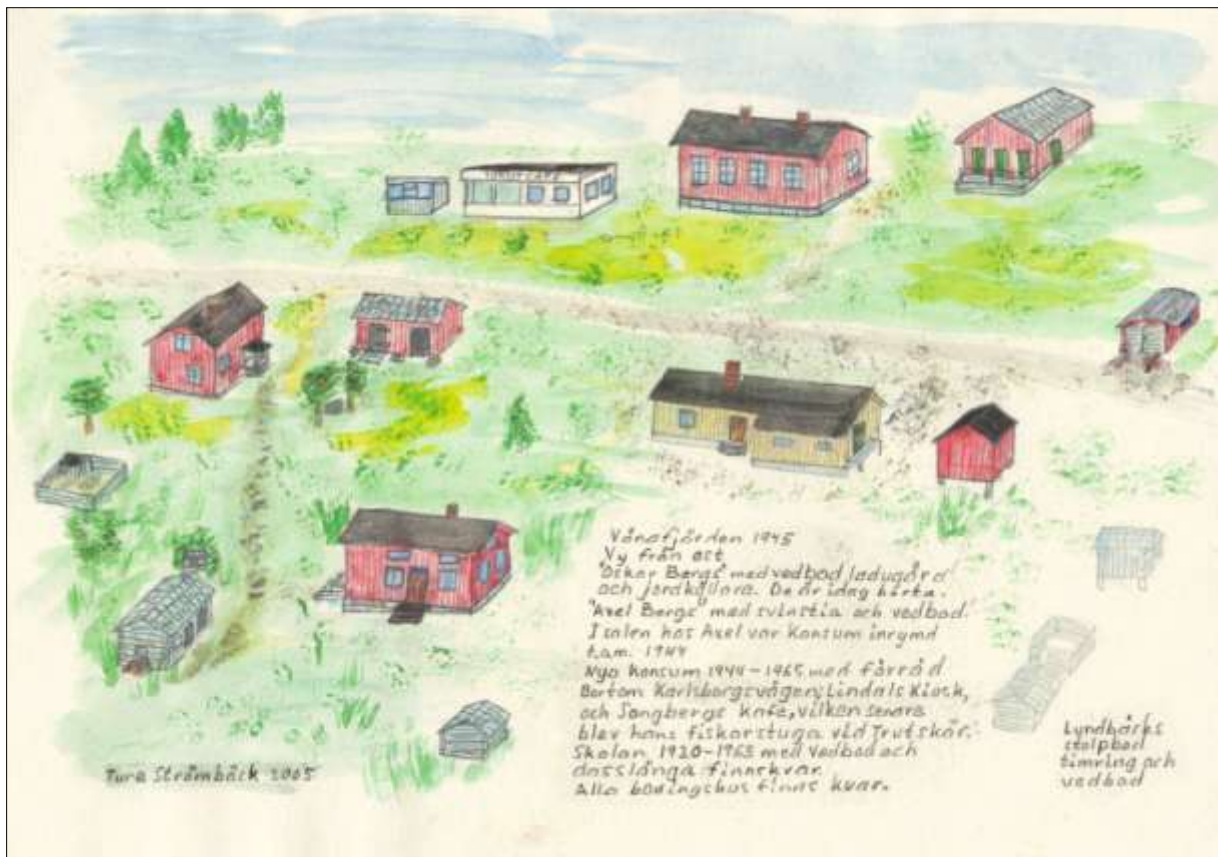 Vånafjärden 1945
Vy från ost
"Oskar Bergs" med vedbod ladugård
och jordkällare. De är idag borta.
"Axel Bergs" med svinstia och vedbod.
I salen hos Axel var Konsum inrymd
t.o.m. 1944
Nya Konsum 1944-1965 med förråd
Bortom Karlsborgsvägen; Lindals Kiosk,
och Sangbergs kafe, vilken senare
blev hans fiskarstuga vid Trutskär.
Skolan 1920-1963 med vedbod och
dasslänga finns kvar.
Alla boningshus finns kvar.
Lundbäcks
stolpbod
timring och
vedbod
Ture Strömbäck 2005